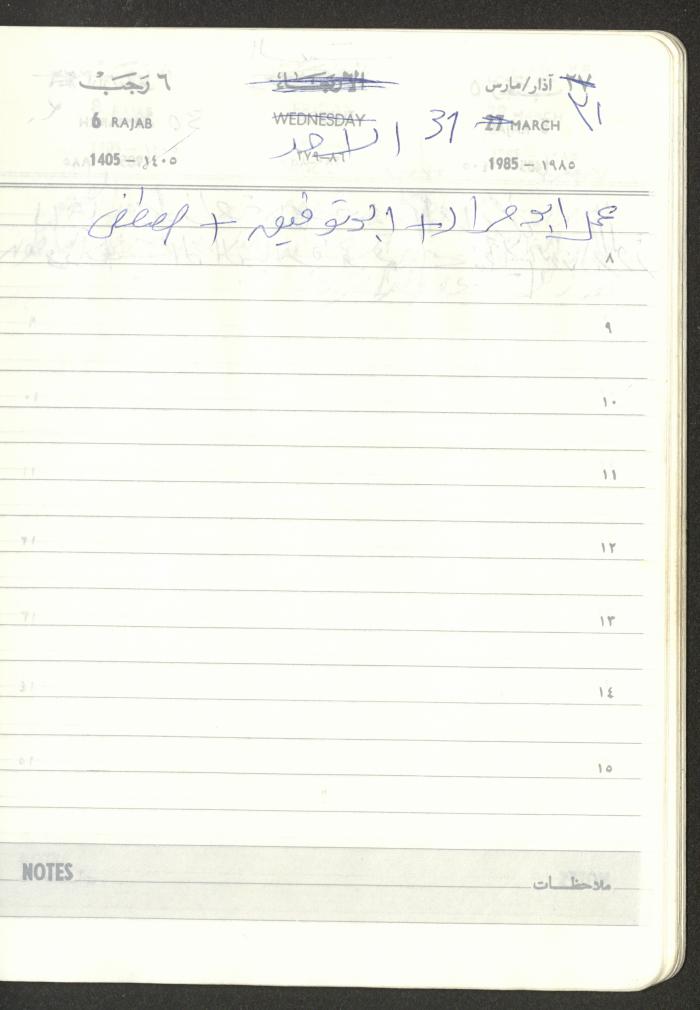 ٦ رَجَبْ الأربعاء ٢٧ آذار/مارس
6 RAJAB WEDNESDAY 27 MARCH
31 الاحد ٣١
1405 — ١٤٠٥ ٢٧٩-٨٦ 1985 — ١٩٨٥
عمل ابو مراد + ابو توفيق + مصطفى
٨
٩
١٠
١١
١٢
١٣
١٤
١٥
NOTES ملاحظات